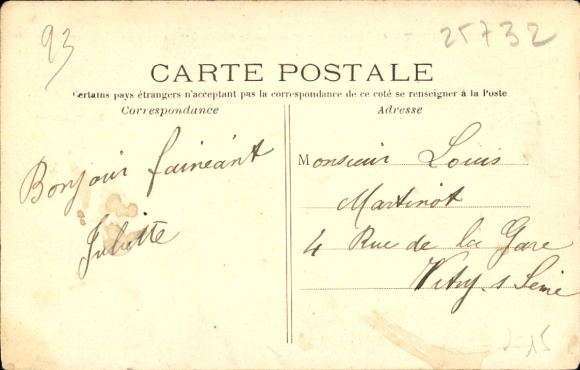 93
25732
CARTE POSTALE
Certains pays étrangers n'acceptant pas la correspondance de ce coté se renseigner à la Poste
Correspondance
Adresse
Bonjour fainéant
Juliette
Monsieur Louis
Martinot
4 Rue de la Gare
Vitry s Seine
15